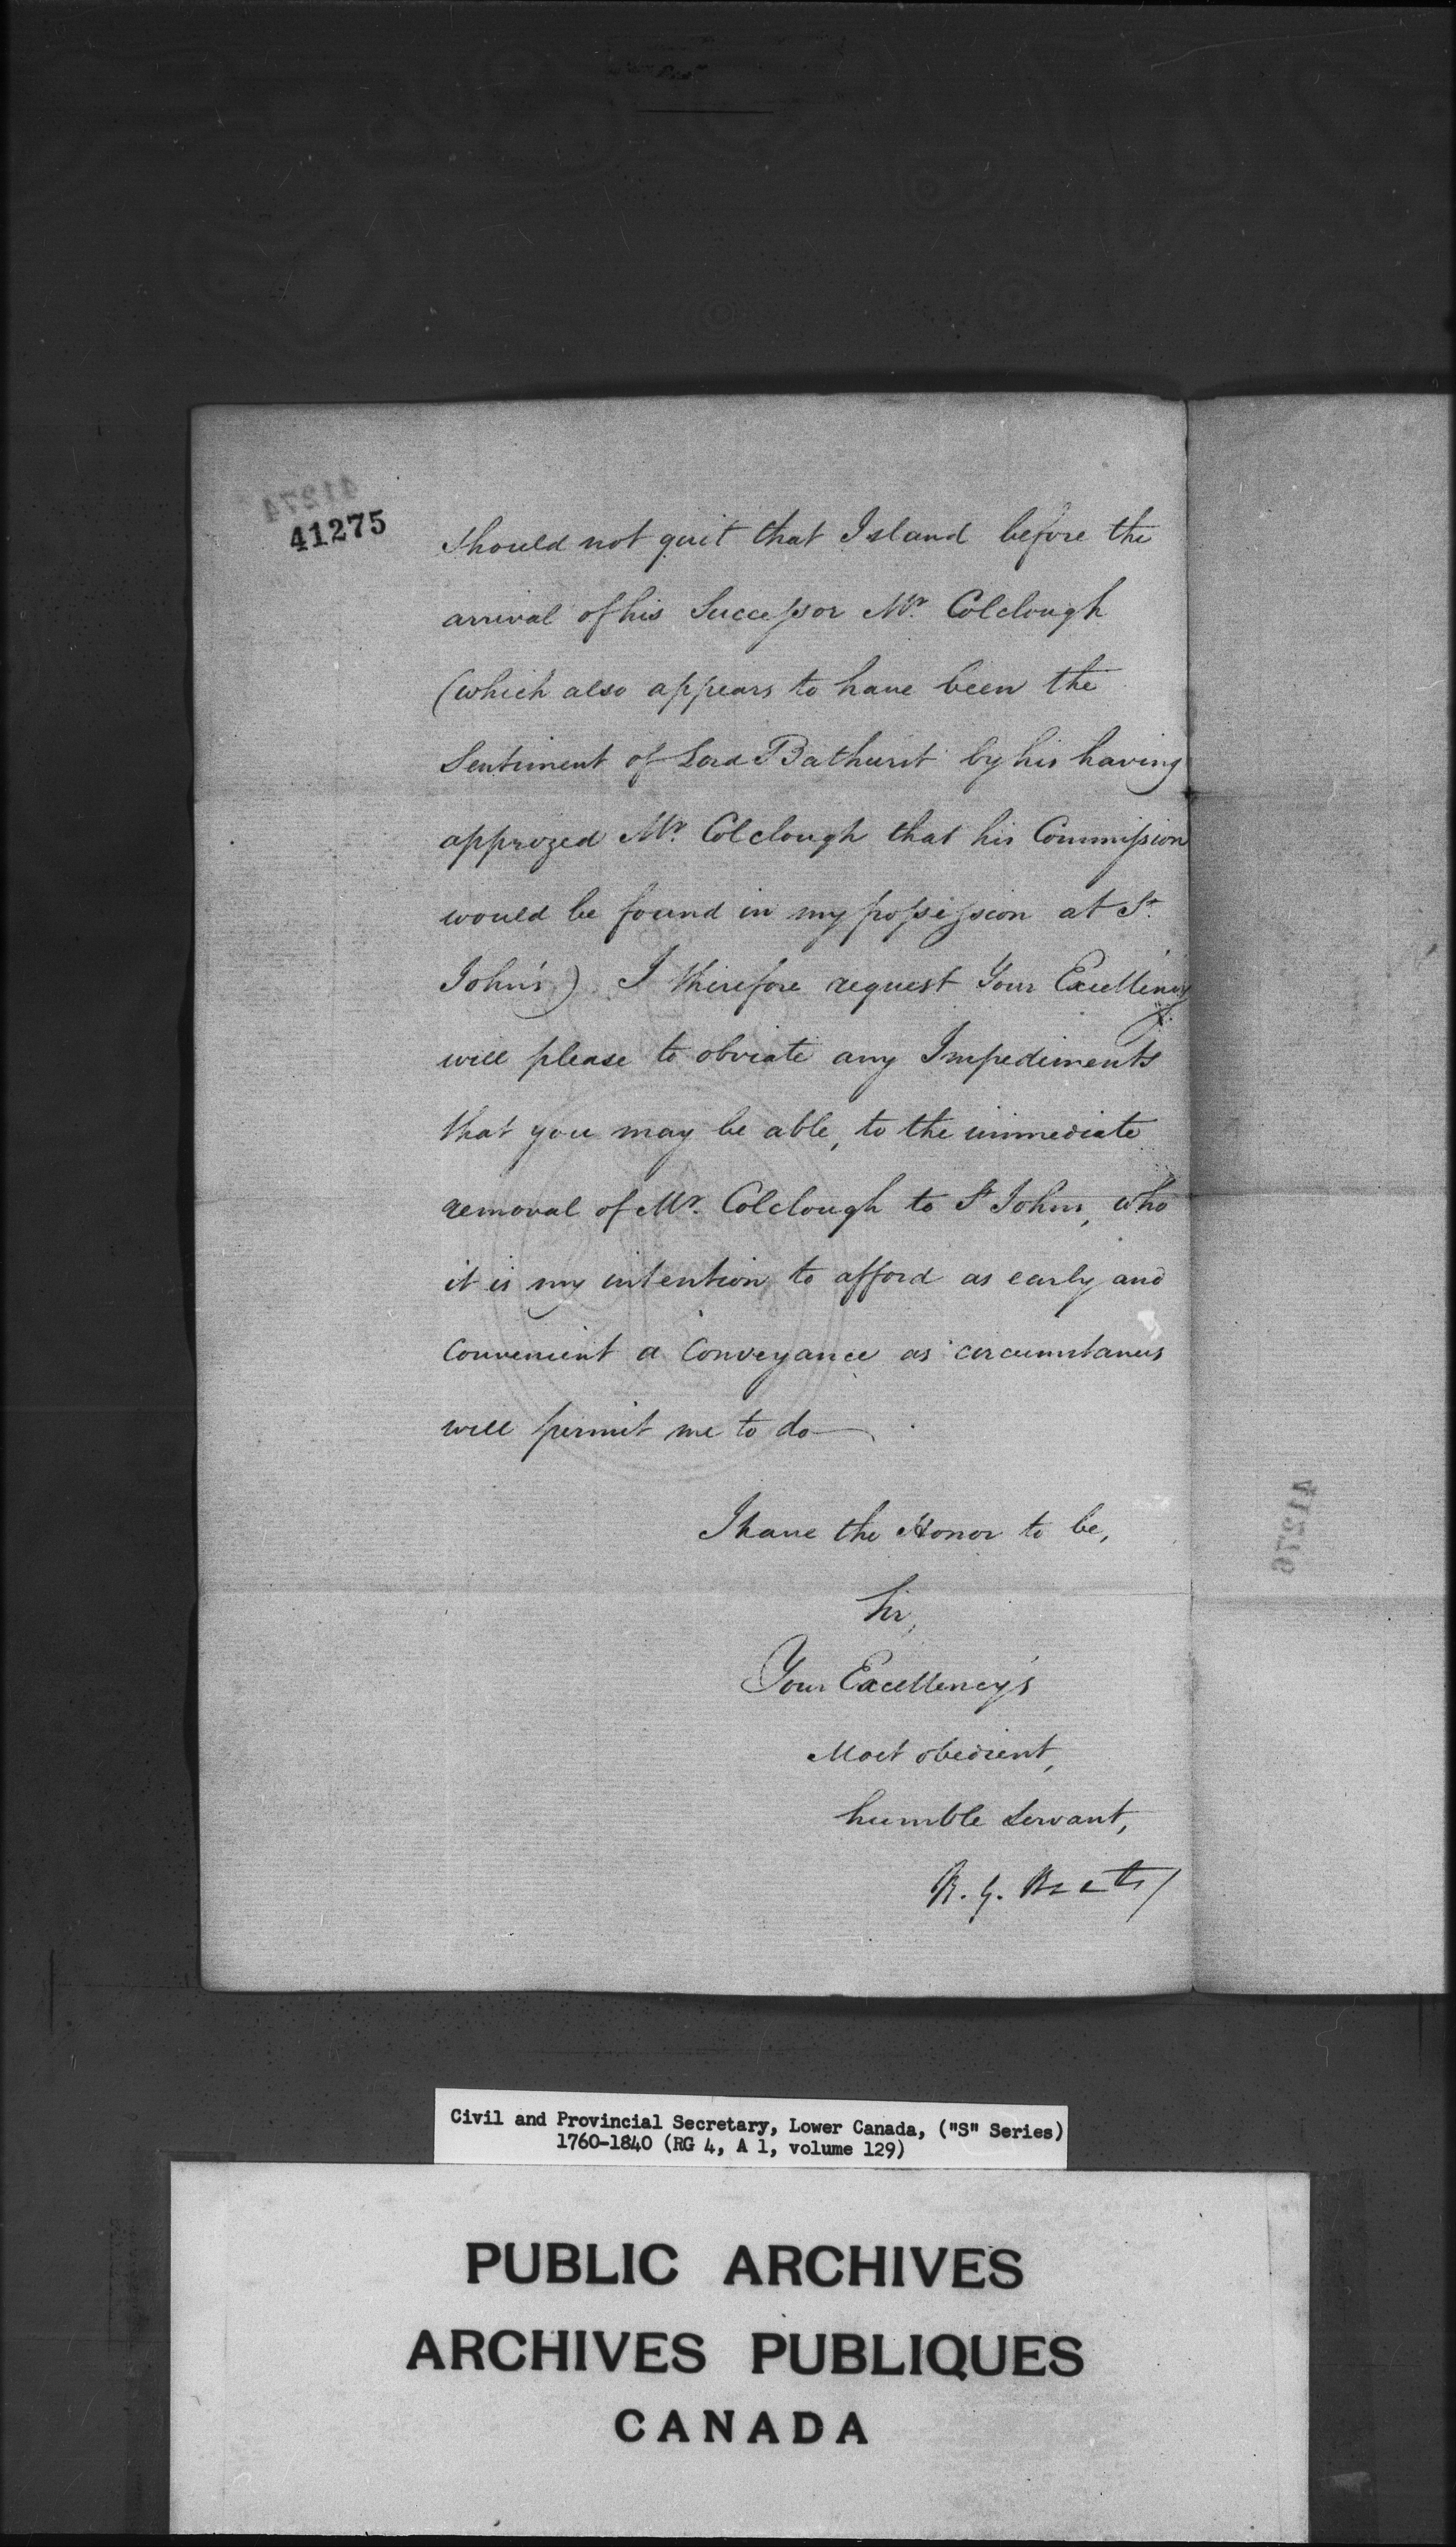 41275
should not quit that Island before the
arrival of his Successor Mr. Colclough
(which also appears to have been the
Sentiment of Lord Bathurst by his having
apprized Mr. Colclough that his Commission
would be found in my possession at St.
John's) I therefore request Your Excellency
will please to obviate any Impediments
that you may be able, to the immediate
removal of Mr. Colclough to St Johns, who
it is my intention to afford as early and
convenient a Conveyance as circumstances
will permit me to do—
I have the Honor to be,
Sir,
Your Excellency's
Most obedient,
humble Servant,
R. G. Keats
41276
Civil and Provincial Secretary, Lower Canada, ("S" Series)
1760-1840 (RG 4, A 1, volume 129)
PUBLIC ARCHIVES
ARCHIVES PUBLIQUES
CANADA